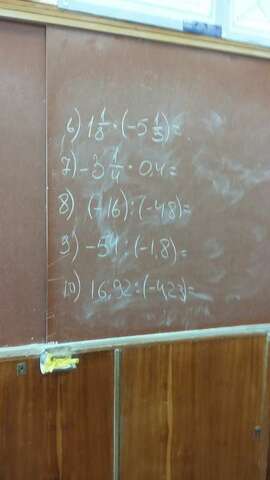 6) 1 1/8 · (-5 1/3) =
7) -3 1/4 · 0,4 =
8) (-16) : (-48) =
9) -54 : (-1,8) =
10) 16,92 : (-4,23) =